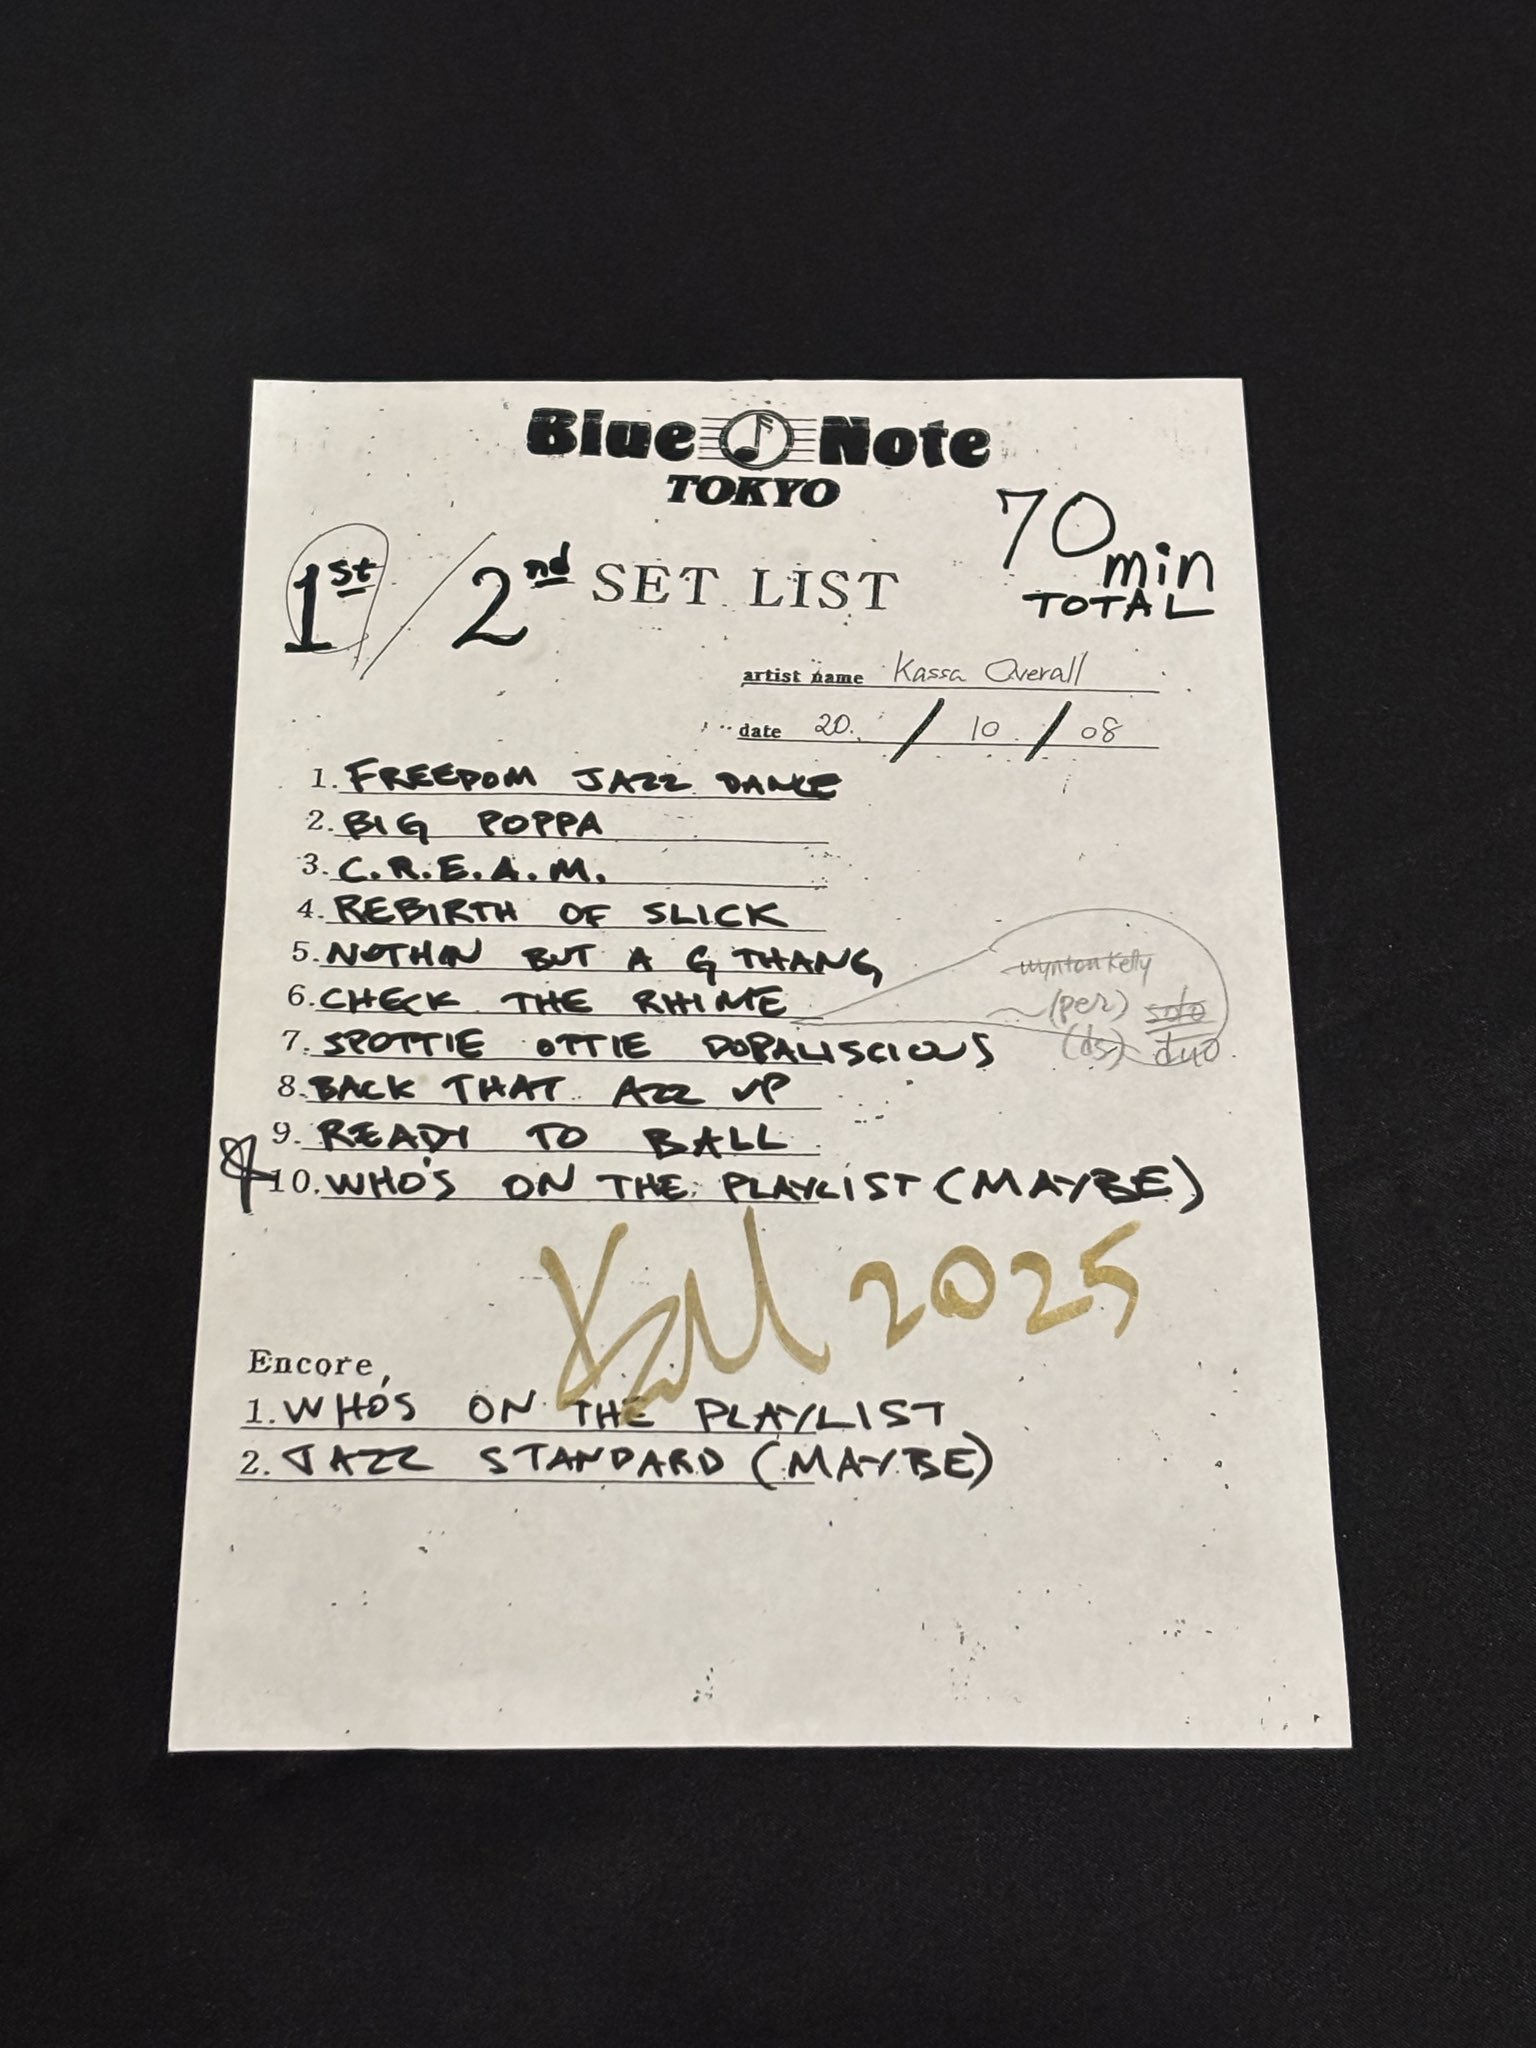 Blue Note
TOKYO
70 min
TOTAL
1st / 2nd SET LIST
artist name Kassa Overall
date 20 / 10 / 08
1. FREEDOM JAZZ DANCE
2. BIG POPPA
3. C.R.E.A.M.
4. REBIRTH OF SLICK
5. NOTHIN BUT A G THANG
6. CHECK THE RHIME
7. SPOTTIE OTTIE DOPALISCIOUS
8. BACK THAT AZZ UP
9. READY TO BALL
10. WHO'S ON THE PLAYLIST (MAYBE)
wynton kelly
(per) solo
(ds) duo
2025
Encore,
1. WHO'S ON THE PLAYLIST
2. JAZZ STANDARD (MAYBE)